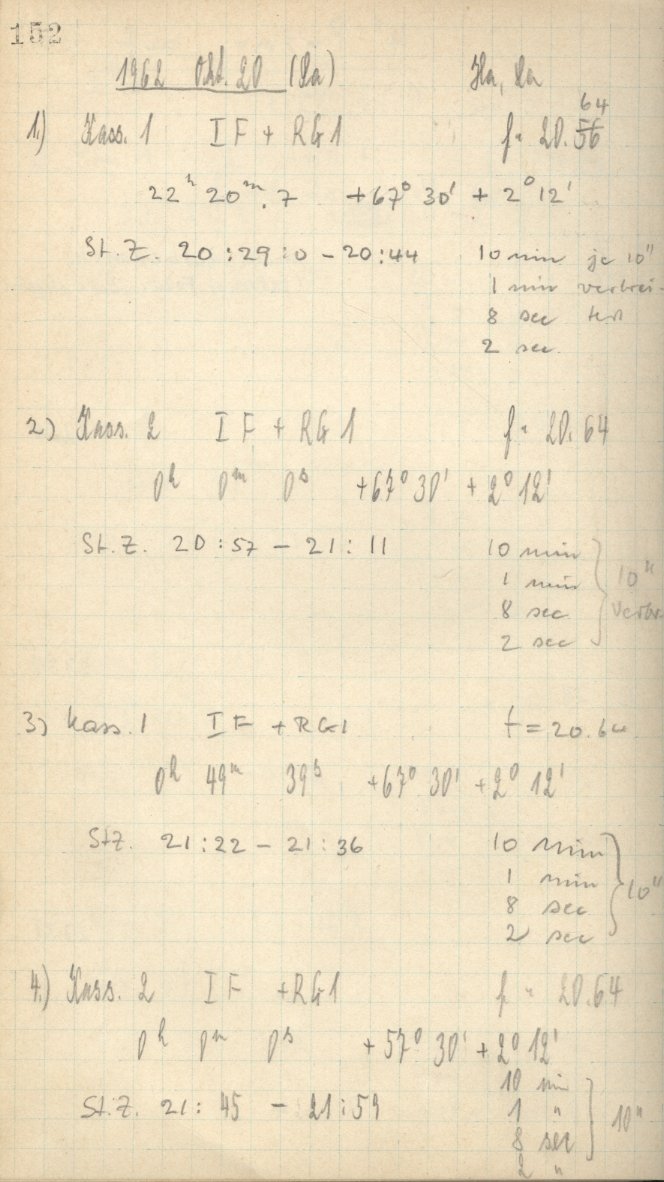 152
1962 Okt. 20 (Sa) Ha, Sa
1.) Kass. 1 IF + RG1 f = 20.56 64
22h 20m.7 +67° 30' + 2° 12'
St. Z. 20:29:0 - 20:44 10 min je 10"
1 min verbrei-
8 sec tert
2 sec.
2) Kass. 2 IF + RG1 f = 20.64
0h 0m 0s +67° 30' + 2° 12'
St. Z. 20:57 - 21:11 10 min
1 min 10"
8 sec verbr
2 sec
3) Kass. 1 IF + RG1 f = 20.64
0h 49m 39s +67° 30' + 2° 12'
StZ. 21:22 - 21:36 10 min
1 min 10"
8 sec
2 sec
4.) Kass. 2 IF + RG1 f = 20.64
0h 0m 0s +57° 30' + 2° 12'
10 min
St. Z. 21:45 - 21:59 1 " 10"
8 sec
2 "